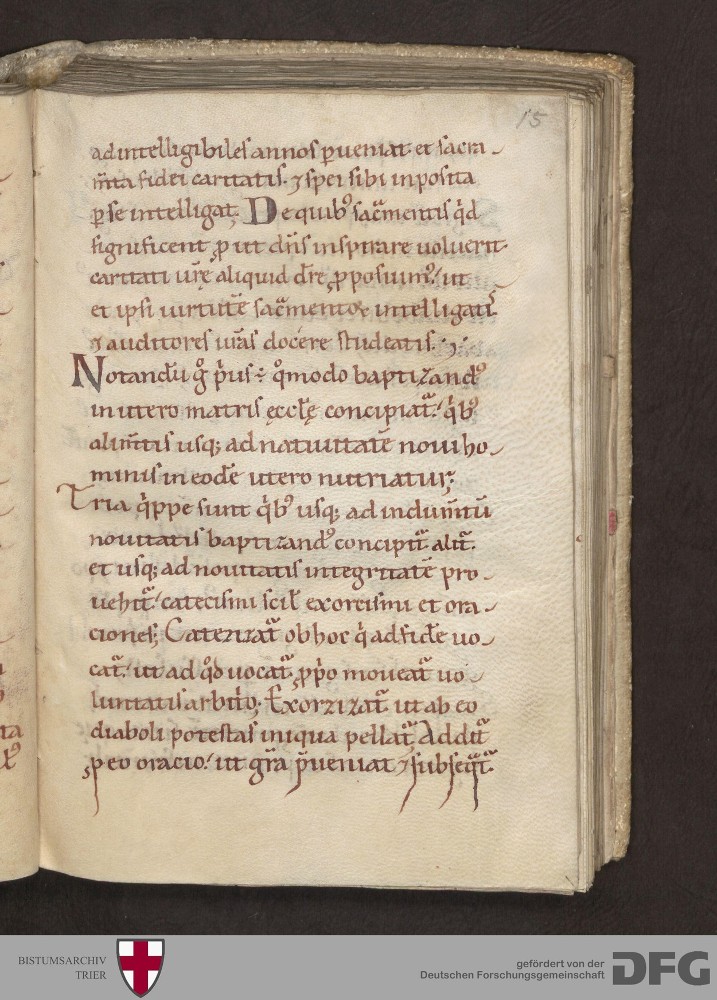 15
ad intelligibiles annos ꝑueniat et sacra-
m̅ta fidei caritatis ⁊ spei sibi inposita
ꝑ se intelligat. De quib᷒ sac̅mentis qͥd
significent ꝓut dn̅s inspirare uoluerit
caritati ur̅ę aliquid dr̅e ꝓposuim᷒. ut
et ipsi uirtute̅ sac̅mentoꝝ intelligatis
⁊ auditores ur̅as docere studeatis.
Notandu̅ gͦ pͥus ÷ qͦmodo baptizand᷒
in utero matris ęccl̅ę concipiat̅. qͥb᷒
alim̅tis usq; ad natiuitate̅ noui ho-
minis in eode̅ utero nutriatur;
Tria qͥppe sunt qͥb᷒ usq; ad indum̅tu̅
nouitatis baptizand᷒ concipit̅ alit̅.
et usq; ad nouitatis integritate̅ pro-
uehit̅. catecismi scil̅ exorcismi et ora-
ciones; Catezizat̅ ob hoc qͥ ad fide̅ uo-
cat̅. ut ad qͦd uocat̅ ꝓpͥo moueat̅ uo-
luntatis arbitͥo; Exorzizat̅ ut ab eo
diaboli potestas iniqua pellat̅; Addit̅
ꝓ eo oracio. ut gr̅a p̅ueniat ⁊ subseqͣt̅.
ta
BISTUMSARCHIV
TRIER
gefördert von der
Deutschen Forschungsgemeinschaft
DFG